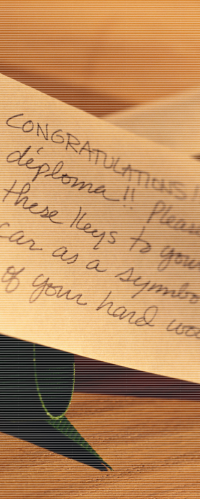 CONGRATULATIONS!
diploma!! Please
these keys to your
car as a symbo
of your hard wo